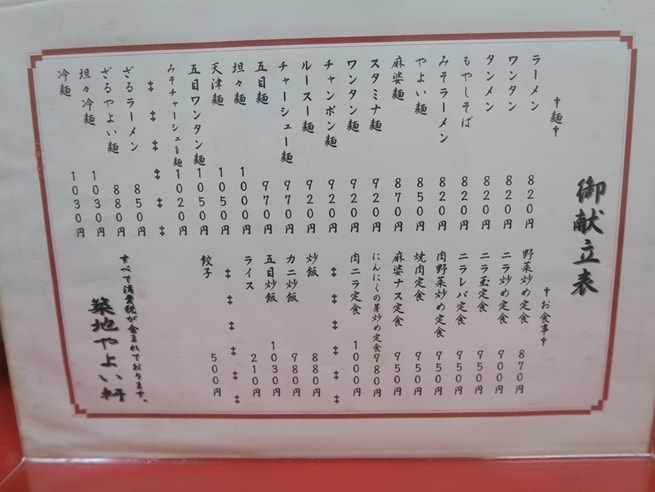 御献立表
麺
ラーメン 820円
ワンタン 820円
タンメン 820円
もやしそば 820円
みそラーメン 820円
やよい麺 850円
麻婆麺 870円
スタミナ麺 920円
ワンタン麺 920円
チャンポン麺 920円
ルースー麺 920円
チャーシュー麺 970円
五目麺 970円
坦々麺 1000円
天津麺 1050円
五目ワンタン麺 1050円
みそチャーシュー麺 1020円
ざるラーメン 850円
ざるやよい麺 880円
坦々冷麺 1030円
冷麺 1030円
お食事
野菜炒め定食 870円
ニラ炒め定食 900円
ニラ玉定食 950円
ニラレバ定食 950円
肉野菜炒め定食 950円
焼肉定食 950円
麻婆ナス定食 950円
にんにくの芽炒め定食 980円
肉ニラ定食 1000円
炒飯 880円
カニ炒飯 980円
五目炒飯 1030円
ライス 210円
餃子 500円
すべて消費税が含まれております。
築地やよい軒